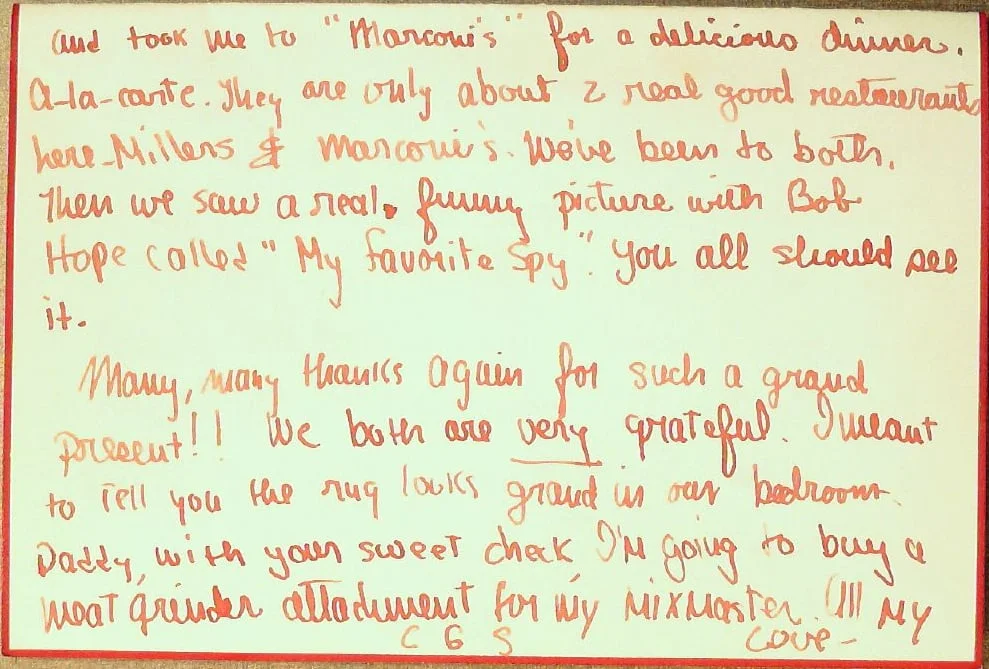 and took me to "Marconi's" for a delicious dinner.
A-la-carte. They are only about 2 real good restaurants
here-Millers & Marconi's. We've been to both.
Then we saw a real funny picture with Bob
Hope called "My Favorite Spy". You all should see
it.
Many, many thanks again for such a grand
present!! We both are very grateful. I meant
to tell you the rug looks grand in our bedroom.
Daddy, with your sweet check I'm going to buy a
meat grinder attachment for my mixmaster. All my
Love-
C G S